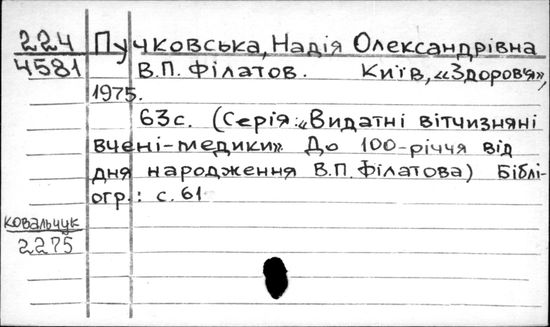 224 Пучковська, Надія Олександрівна
4581 В.П. Філатов. Київ, «Здоров'я»,
1975.
63с. (Серія: «Видатні вітчизняні
вчені-медики». До 100-річчя від
дня народження В.П. Філатова) Біблі-
огр.: с. 61
Ковальчук
2275